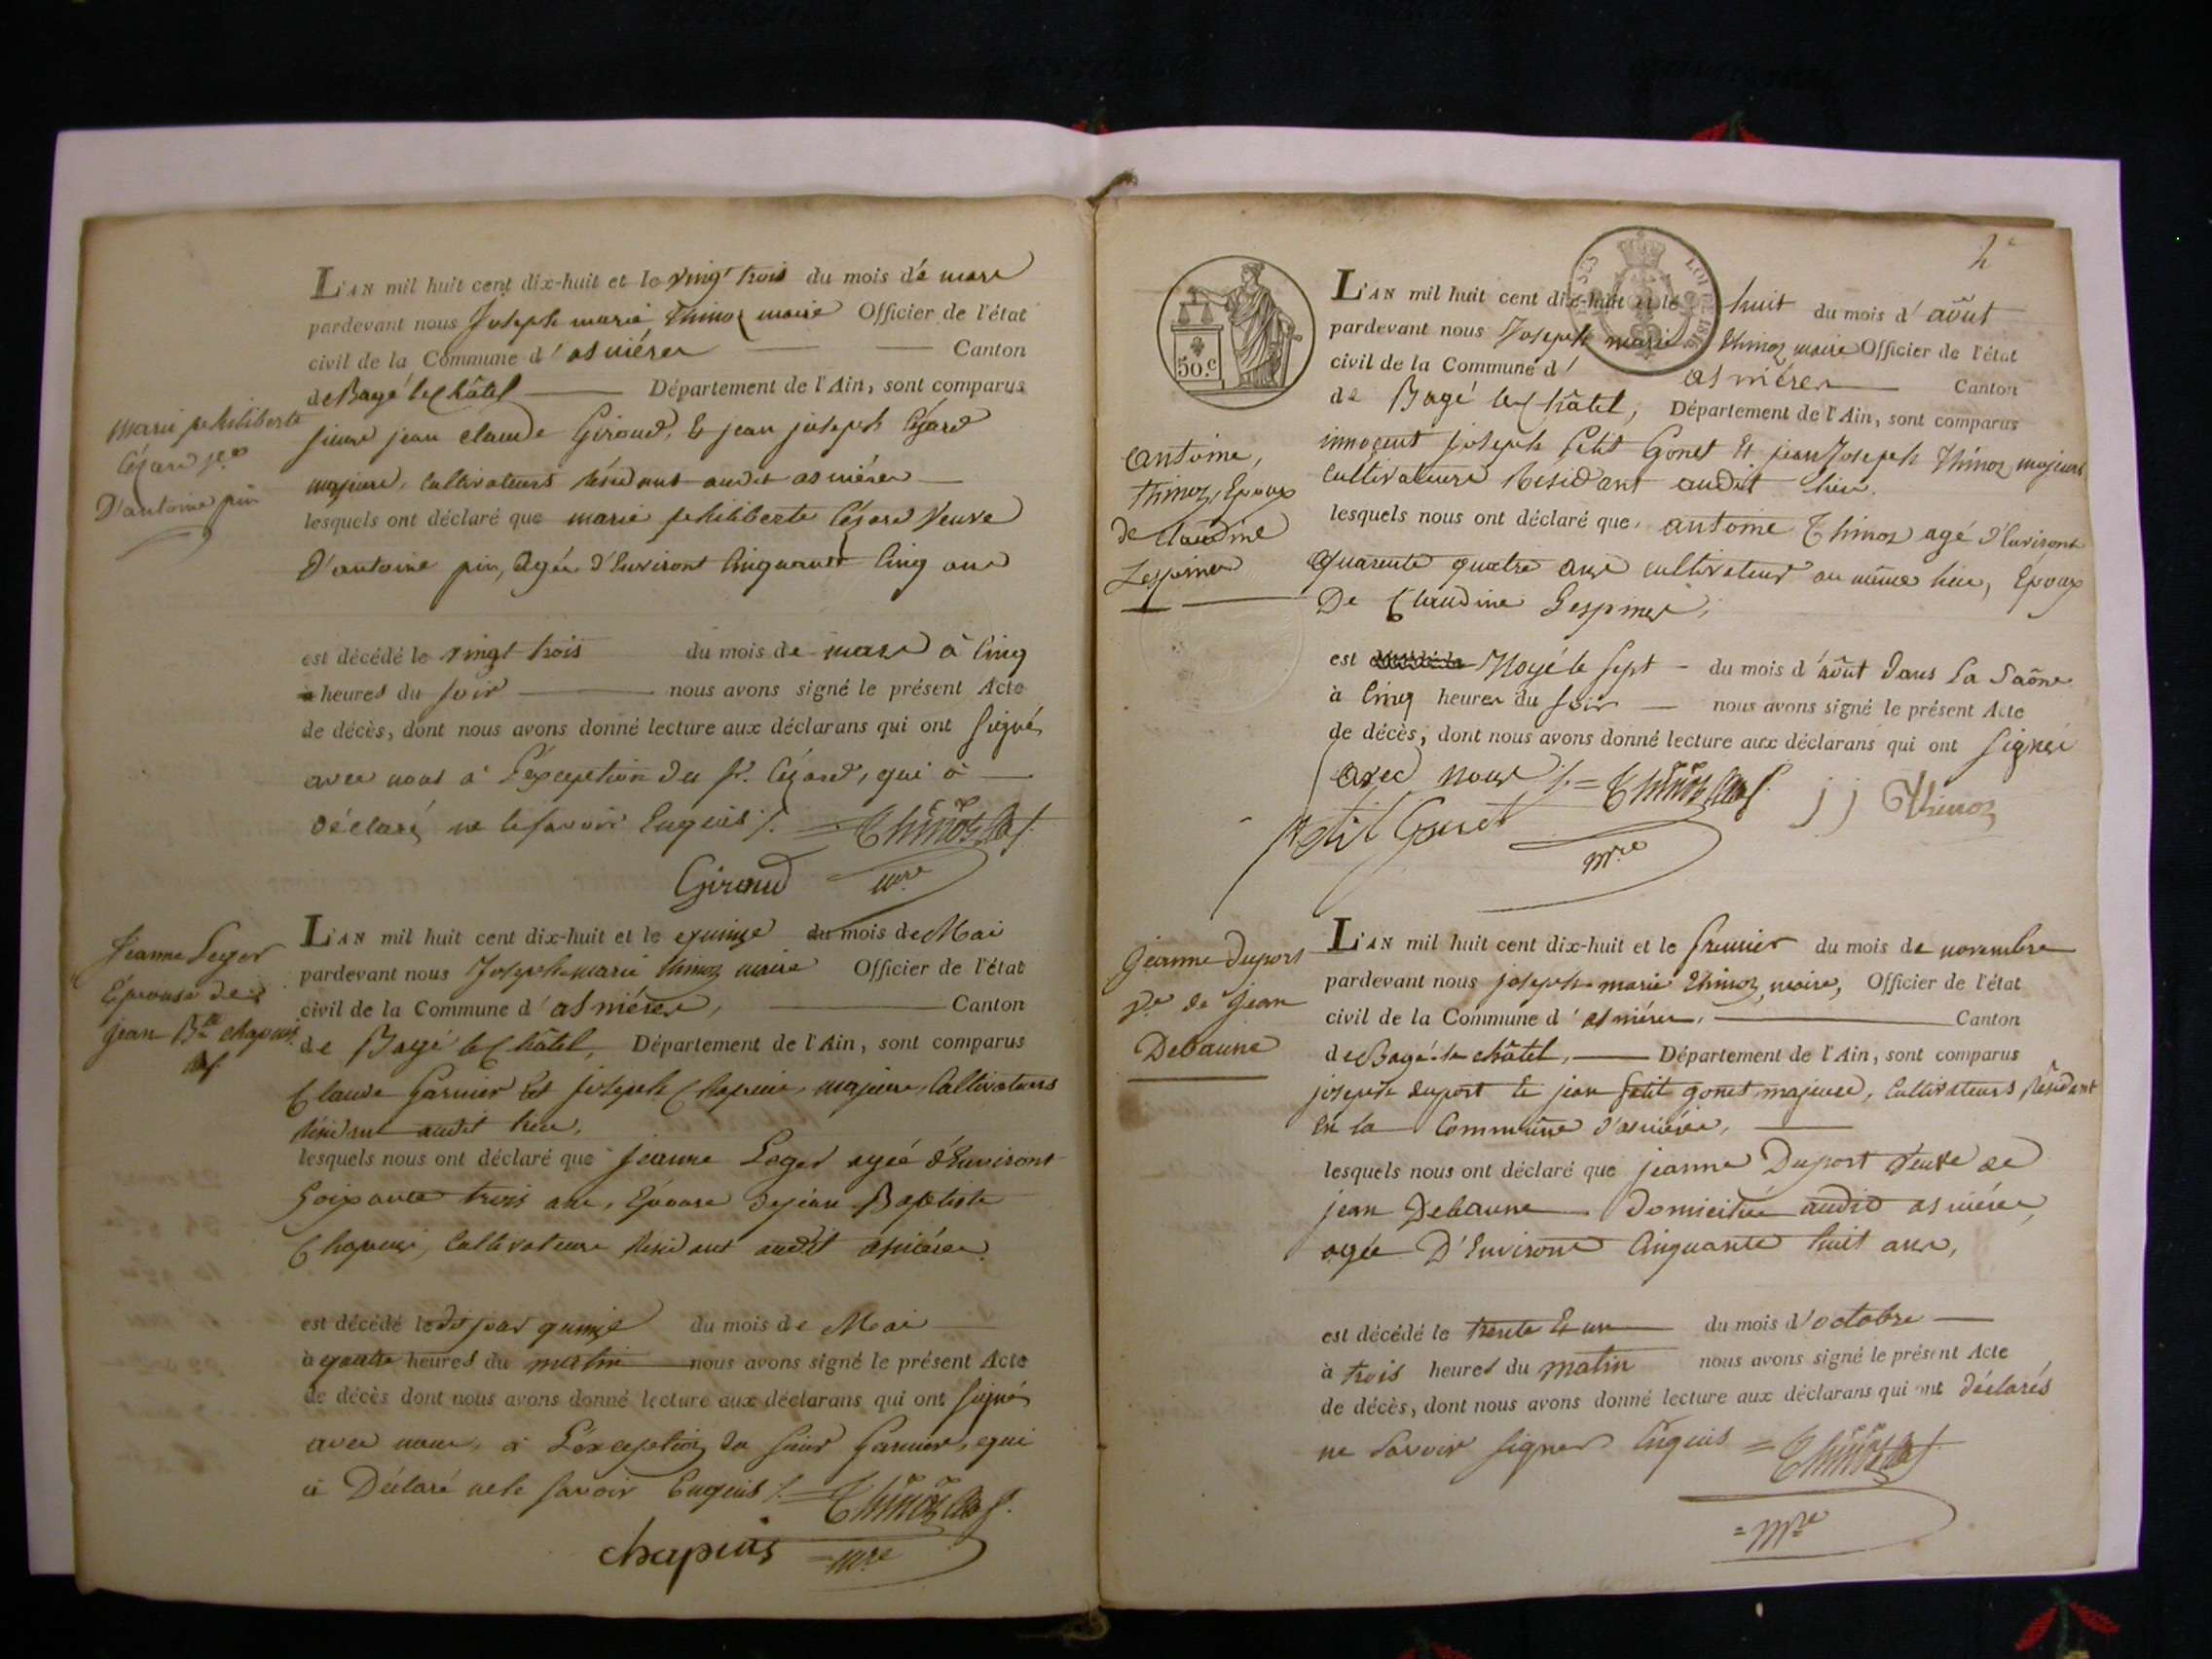 Marie philiberte
Cézard
D'antoine pin
L'AN mil huit cent dix-huit et le vingt trois du mois de mars
pardevant nous Joseph marie Thinoz maire Officier de l'état
civil de la Commune d'asniéres Canton
de Bagé le Châtel Département de l'Ain, sont comparus
sieurs jean claude Giroud, & jean joseph Cézard
majeurs, Cultivateurs résidant audit asniéres
lesquels ont déclaré que marie philiberte Cézard Veuve
d'antoine pin, agée d'Environt Cinquante Cinq ans
est décédé le vingt trois du mois de mars à Cinq
heures du soir nous avons signé le présent Acte
de décès, dont nous avons donné lecture aux déclarans qui ont signés
avec nous à l'exception du sr. Cézard, qui à
déclaré ne le savoir Enquis ./. = Thinoz
Giroud mre
Jeanne Leger
Epouse de
jean Bte chapuis
L'AN mil huit cent dix-huit et le quinze du mois de Mai
pardevant nous Joseph-marie thinoz maire Officier de l'état
civil de la Commune d'asniéres, Canton
de Bagé le Châtel, Département de l'Ain, sont comparus
Claude Garnier et joseph Chapuis, majeurs, Cultivateurs
résidant audit lieu,
lesquels nous ont déclaré que Jeanne Leger agée d'Environt
soixante trois ans, Epouse de jean Baptiste
Chapuis, Cultivateurs résidant audit asniéres.
est décédé le dit jour quinze du mois de Mai
à quatre heures du matin nous avons signé le présent Acte
de décès dont nous avons donné lecture aux déclarans qui ont signés
avec nous, à L'exception du sieur Garnier, qui
à Déclaré ne le savoir Enquis ./. = Thinoz
chapuis = mre
2e
50.c
Antoine,
thinoz, Epoux
de claudine
Lespines
L'AN mil huit cent dix-huit et le huit du mois d'août
pardevant nous Joseph marie thinoz maire Officier de l'état
civil de la Commune d'asniéres Canton
de Bagé le Châtel, Département de l'Ain, sont comparus
innocent joseph Petit Gonet Et jean Joseph thinoz majeurs
cultivateurs Résidant audit lieu.
lesquels nous ont déclaré que antoine Thinoz agé d'Environt
quarente quatre ans cultivateur au même lieu, Epoux
De Claudine Lespines,
est Noyé le sept du mois d'août dans La Saône
à Cinq heures du soir nous avons signé le présent Acte
de décès, dont nous avons donné lecture aux déclarans qui ont signés
avec nous ./. = Thinoz j j Thinoz
Petit Gonet mre
Jeanne Duport
ve de Jean
Debaune
L'AN mil huit cent dix-huit et le premier du mois de novembre
pardevant nous joseph-marie thinoz, maire, Officier de l'état
civil de la Commune d'asniéres, Canton
de Bagé-le châtel, Département de l'Ain, sont comparus
joseph duport Et jean Petit gonet majeurs, Cultivateurs Résident
En la Commune d'asniéres,
lesquels nous ont déclaré que jeanne Duport Veuve de
jean Debaune domiciliée audit asniéres,
agée D'Environt Cinquante huit ans,
est décédé le trente & un du mois d'octobre
à trois heures du matin nous avons signé le présent Acte
de décès, dont nous avons donné lecture aux déclarans qui ont déclarés
ne savoir signer Enquis = Thinoz
= mre